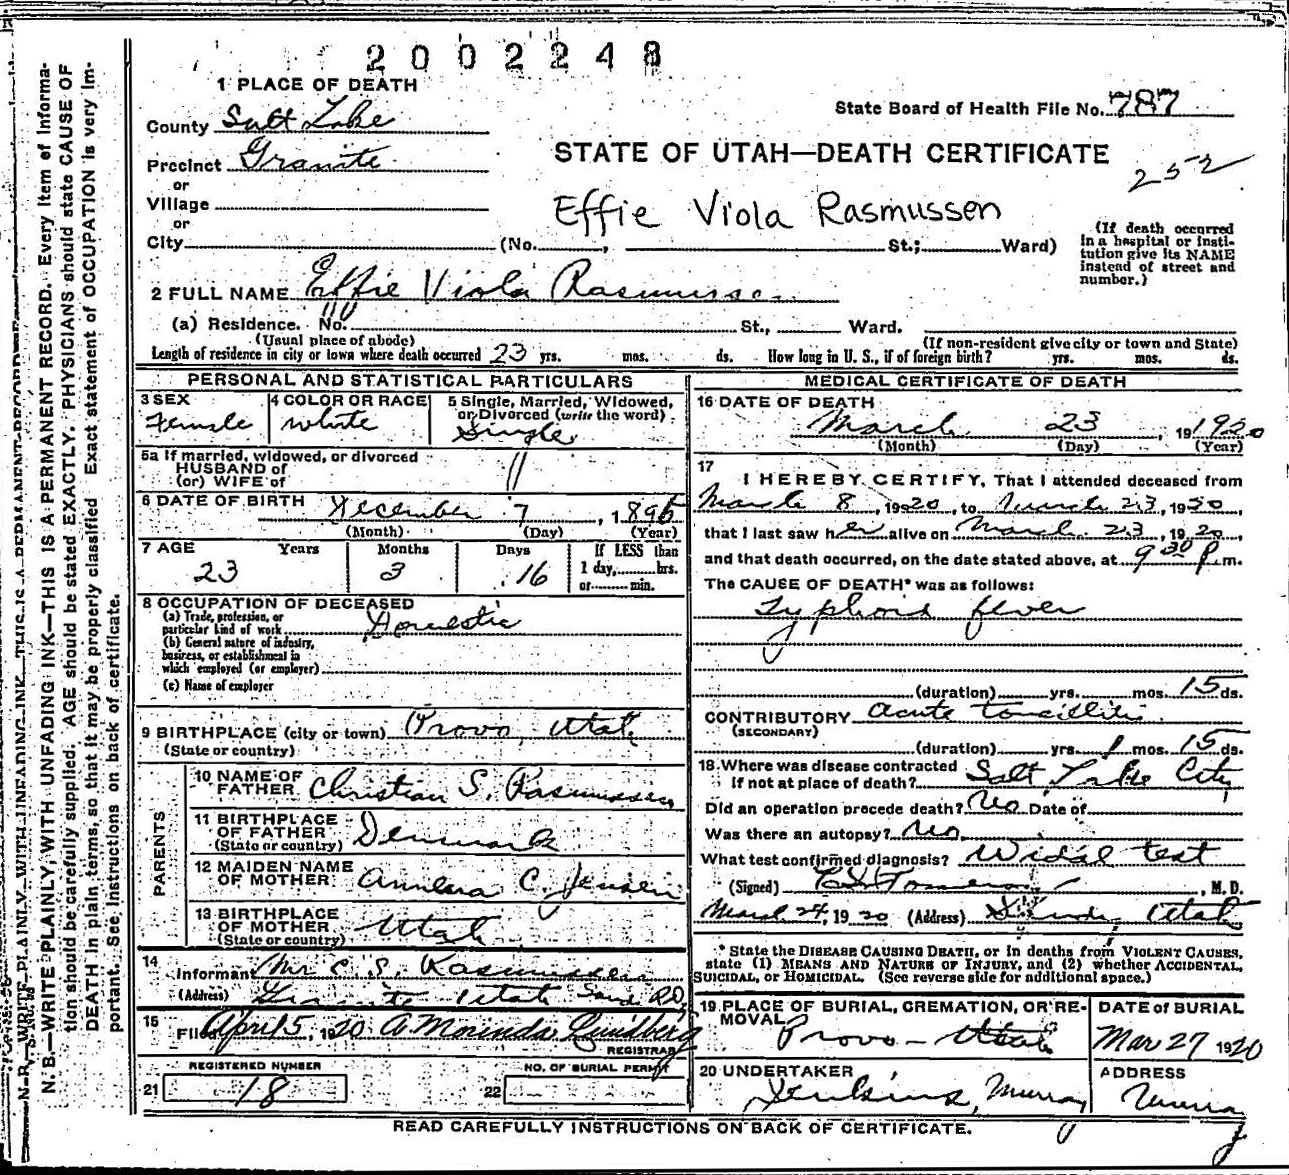 2002248
1 PLACE OF DEATH
State Board of Health File No. 787
County Salt Lake
STATE OF UTAH—DEATH CERTIFICATE
252
Precinct Granite
or
Village
Effie Viola Rasmussen
or
City (No. , St.; Ward)
(If death occurred
in a hospital or insti-
tution give its NAME
instead of street and
number.)
2 FULL NAME Effie Viola Rasmussen
(a) Residence. No. St., Ward.
(Usual place of abode) (If non-resident give city or town and State)
Length of residence in city or town where death occurred 23 yrs. mos. ds. How long in U. S., if of foreign birth? yrs. mos. ds.
PERSONAL AND STATISTICAL PARTICULARS
3 SEX
Female
4 COLOR OR RACE
white
5 Single, Married, Widowed,
or Divorced (write the word)
Single
5a If married, widowed, or divorced
HUSBAND of
(or) WIFE of
6 DATE OF BIRTH December 7, 1896
(Month) (Day) (Year)
7 AGE Years Months Days
23 3 16
If LESS than
1 day, hrs.
or min.
8 OCCUPATION OF DECEASED
(a) Trade, profession, or
particular kind of work Domestic
(b) General nature of industry,
business, or establishment in
which employed (or employer)
(c) Name of employer
9 BIRTHPLACE (city or town) Provo, Utah
(State or country)
PARENTS
10 NAME OF
FATHER Christian S. Rasmussen
11 BIRTHPLACE
OF FATHER Denmark
(State or country)
12 MAIDEN NAME
OF MOTHER C. Jensen
13 BIRTHPLACE
OF MOTHER Utah
(State or country)
14
Informant Mr C. S. Rasmussen
(Address) Granite Utah
15
Filed April 5, 1920 A. Morinda Lundberg
REGISTRAR
REGISTERED NUMBER
21 18
NO. OF BURIAL PERMIT
22
MEDICAL CERTIFICATE OF DEATH
16 DATE OF DEATH
March 23, 191920
(Month) (Day) (Year)
17
I HEREBY CERTIFY, That I attended deceased from
March 8, 1920, to March 23, 1920,
that I last saw her alive on March 23, 1920,
and that death occurred, on the date stated above, at 9 30 P.m.
The CAUSE OF DEATH* was as follows:
Typhoid fever
(duration) yrs. mos. 15 ds.
CONTRIBUTORY Acute toncillitis
(SECONDARY)
(duration) yrs. 1 mos. 15 ds.
18 Where was disease contracted
if not at place of death? Salt Lake City
Did an operation precede death? No Date of
Was there an autopsy? No
What test confirmed diagnosis? Widal test
(Signed) , M. D.
March 24, 1920 (Address) Utah
* State the DISEASE CAUSING DEATH, or in deaths from VIOLENT CAUSES,
state (1) MEANS AND NATURE OF INJURY, and (2) whether ACCIDENTAL,
SUICIDAL, or HOMICIDAL. (See reverse side for additional space.)
19 PLACE OF BURIAL, CREMATION, OR RE-
MOVAL
Provo - Utah
DATE of BURIAL
Mar 27 1920
20 UNDERTAKER
Jenkins, Murray
ADDRESS
Murray
READ CAREFULLY INSTRUCTIONS ON BACK OF CERTIFICATE.
N. B.—WRITE PLAINLY, WITH UNFADING INK—THIS IS A PERMANENT RECORD. Every item of informa-
tion should be carefully supplied. AGE should be stated EXACTLY. PHYSICIANS should state CAUSE OF
DEATH in plain terms, so that it may be properly classified. Exact statement of OCCUPATION is very im-
portant. See instructions on back of certificate.